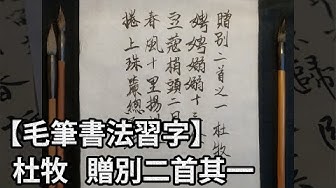 贈別二首之一 杜牧
娉娉嫋嫋十三
豆蔻梢頭二月
春風十里揚
捲上珠簾總
【毛筆書法習字】
杜牧 贈別二首其一